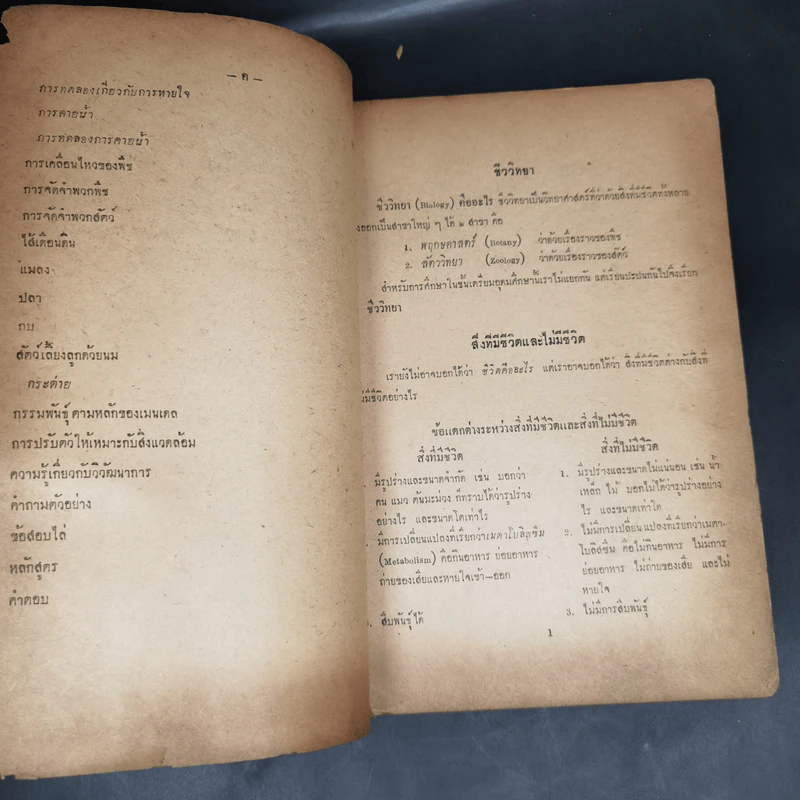 — ค —
การทดลองเกี่ยวกับการหายใจ
การคายน้ำ
การทดลองการคายน้ำ
การเคลื่อนไหวของพืช
การจัดจำพวกพืช
การจัดจำพวกสัตว์
ไส้เดือนดิน
แมลง
ปลา
กบ
สัตว์เลี้ยงลูกด้วยนม
กระต่าย
กรรมพันธุ์ ตามหลักของเมนเดล
การปรับตัวให้เหมาะกับสิ่งแวดล้อม
ความรู้เกี่ยวกับวิวัฒนาการ
คำถามตัวอย่าง
ข้อสอบไล่
หลักสูตร
คำตอบ
ชีววิทยา
ชีววิทยา (Biology) คืออะไร ชีววิทยาเป็นวิทยาศาสตร์ที่ว่าด้วยสิ่งที่มีชีวิตทั้งหลาย
งออกเป็นสาขาใหญ่ ๆ ได้ ๒ สาขา คือ
1. พฤกษศาสตร์ (Botany) ว่าด้วยเรื่องราวของพืช
2. สัตววิทยา (Zoology) ว่าด้วยเรื่องราวของสัตว์
สำหรับการศึกษาในชั้นเตรียมอุดมศึกษานี้เราไม่แยกกัน แต่เรียนปะปนกันไปจึงเรียก
ชีววิทยา
สิ่งที่มีชีวิตและไม่มีชีวิต
เรายังไม่อาจบอกได้ว่า ชีวิตคืออะไร แต่เราอาจบอกได้ว่า สิ่งที่มีชีวิตต่างกับสิ่งที่
ม่มีชีวิตอย่างไร
ข้อแตกต่างระหว่างสิ่งที่มีชีวิตและสิ่งที่ไม่มีชีวิต
สิ่งที่มีชีวิต
มีรูปร่างและขนาดจำกัด เช่น บอกว่า
คน แมว ต้นมะม่วง ก็ทราบได้ว่ารูปร่าง
อย่างไร และขนาดโตเท่าไร
. มีการเปลี่ยนแปลงที่เรียกว่าเมตาโบลิซึม
(Metabolism) คือกินอาหาร ย่อยอาหาร
ถ่ายของเสียและหายใจเข้า—ออก
. สืบพันธุ์ได้
สิ่งที่ไม่มีชีวิต
1. มีรูปร่างและขนาดไม่แน่นอน เช่น น้ำ
เหล็ก ไม้ บอกไม่ได้ว่ารูปร่างอย่าง
ไร และขนาดเท่าใด
2. ไม่มีการเปลี่ยนแปลงที่เรียกว่าเมตา-
โบลิสซึม คือไม่กินอาหาร ไม่มีการ
ย่อยอาหาร ไม่ถ่ายของเสีย และไม่
หายใจ
3. ไม่มีการสืบพันธุ์
1